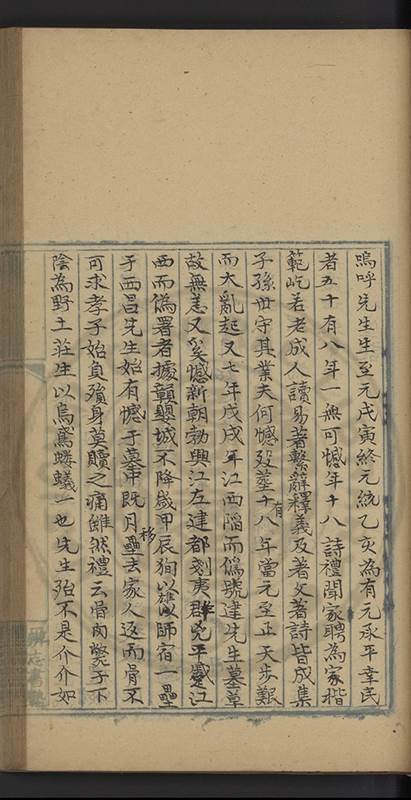 嗚呼先生生至元戊寅終元統乙亥為有元承平幸民
者五十有八年一無可憾年十八詩禮聞家聘為家楷
範屹若老成人讀易著繫辭釋義及著文著詩皆成集
子孫世守其業夫何憾歿塟十有八年當元至正天步艱
而大亂起又七年戊戌年江西陷而僞號建先生墓草
故無恙又奚憾新朝勃興江左建都剗夷群兇平蹙江
西而僞署者據贛嬰城不降歲甲辰狥以師宿一壘
于西昌先生始有憾于墓中既月移壘去家人返而骨不
可求孝子始負殞身莫贖之痛雖然禮云骨肉斃于下
陰為野土莊生以烏鳶螻蟻一也先生殆不是介介如